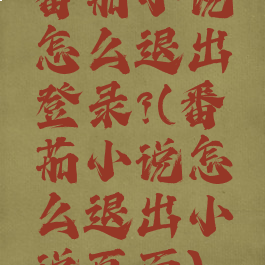 番茄小说
怎么退出
登录?(番
茄小说怎
么退出小
说页面)